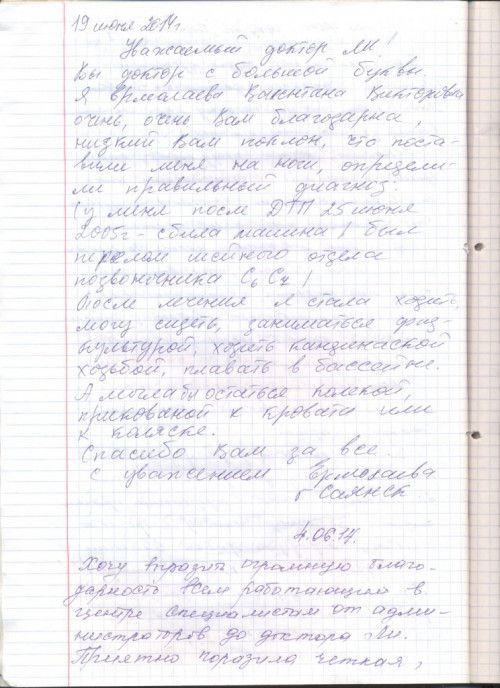 19 июня 2014г.
Уважаемый доктор Ли!
Вы доктор с большой буквы.
Я Ермолаева Викторовна
очень, очень Вам благодарна,
низкий Вам поклон, что поста-
вили меня на ноги, определи-
ли правильный диагноз.
(у меня после ДТП 25 июня
2005г - сбила машина / был
перелом шейного отдела
позвоночника С6 С7 /
После лечения я стала ходить,
могу сидеть, заниматься физ-
культурой, ходить
ходьбой, плавать в бассейне.
А могла бы остаться колекой,
прикованой к кровати или
к коляске.
Спасибо Вам за все.
с уважением Ермолаева
г Саянск.
4.06.14.
Хочу выразить огромную благо-
дарность всем работающим в
центре специалистам от адми-
нистраторов до доктора Ли.
Приятно поразила четкая,